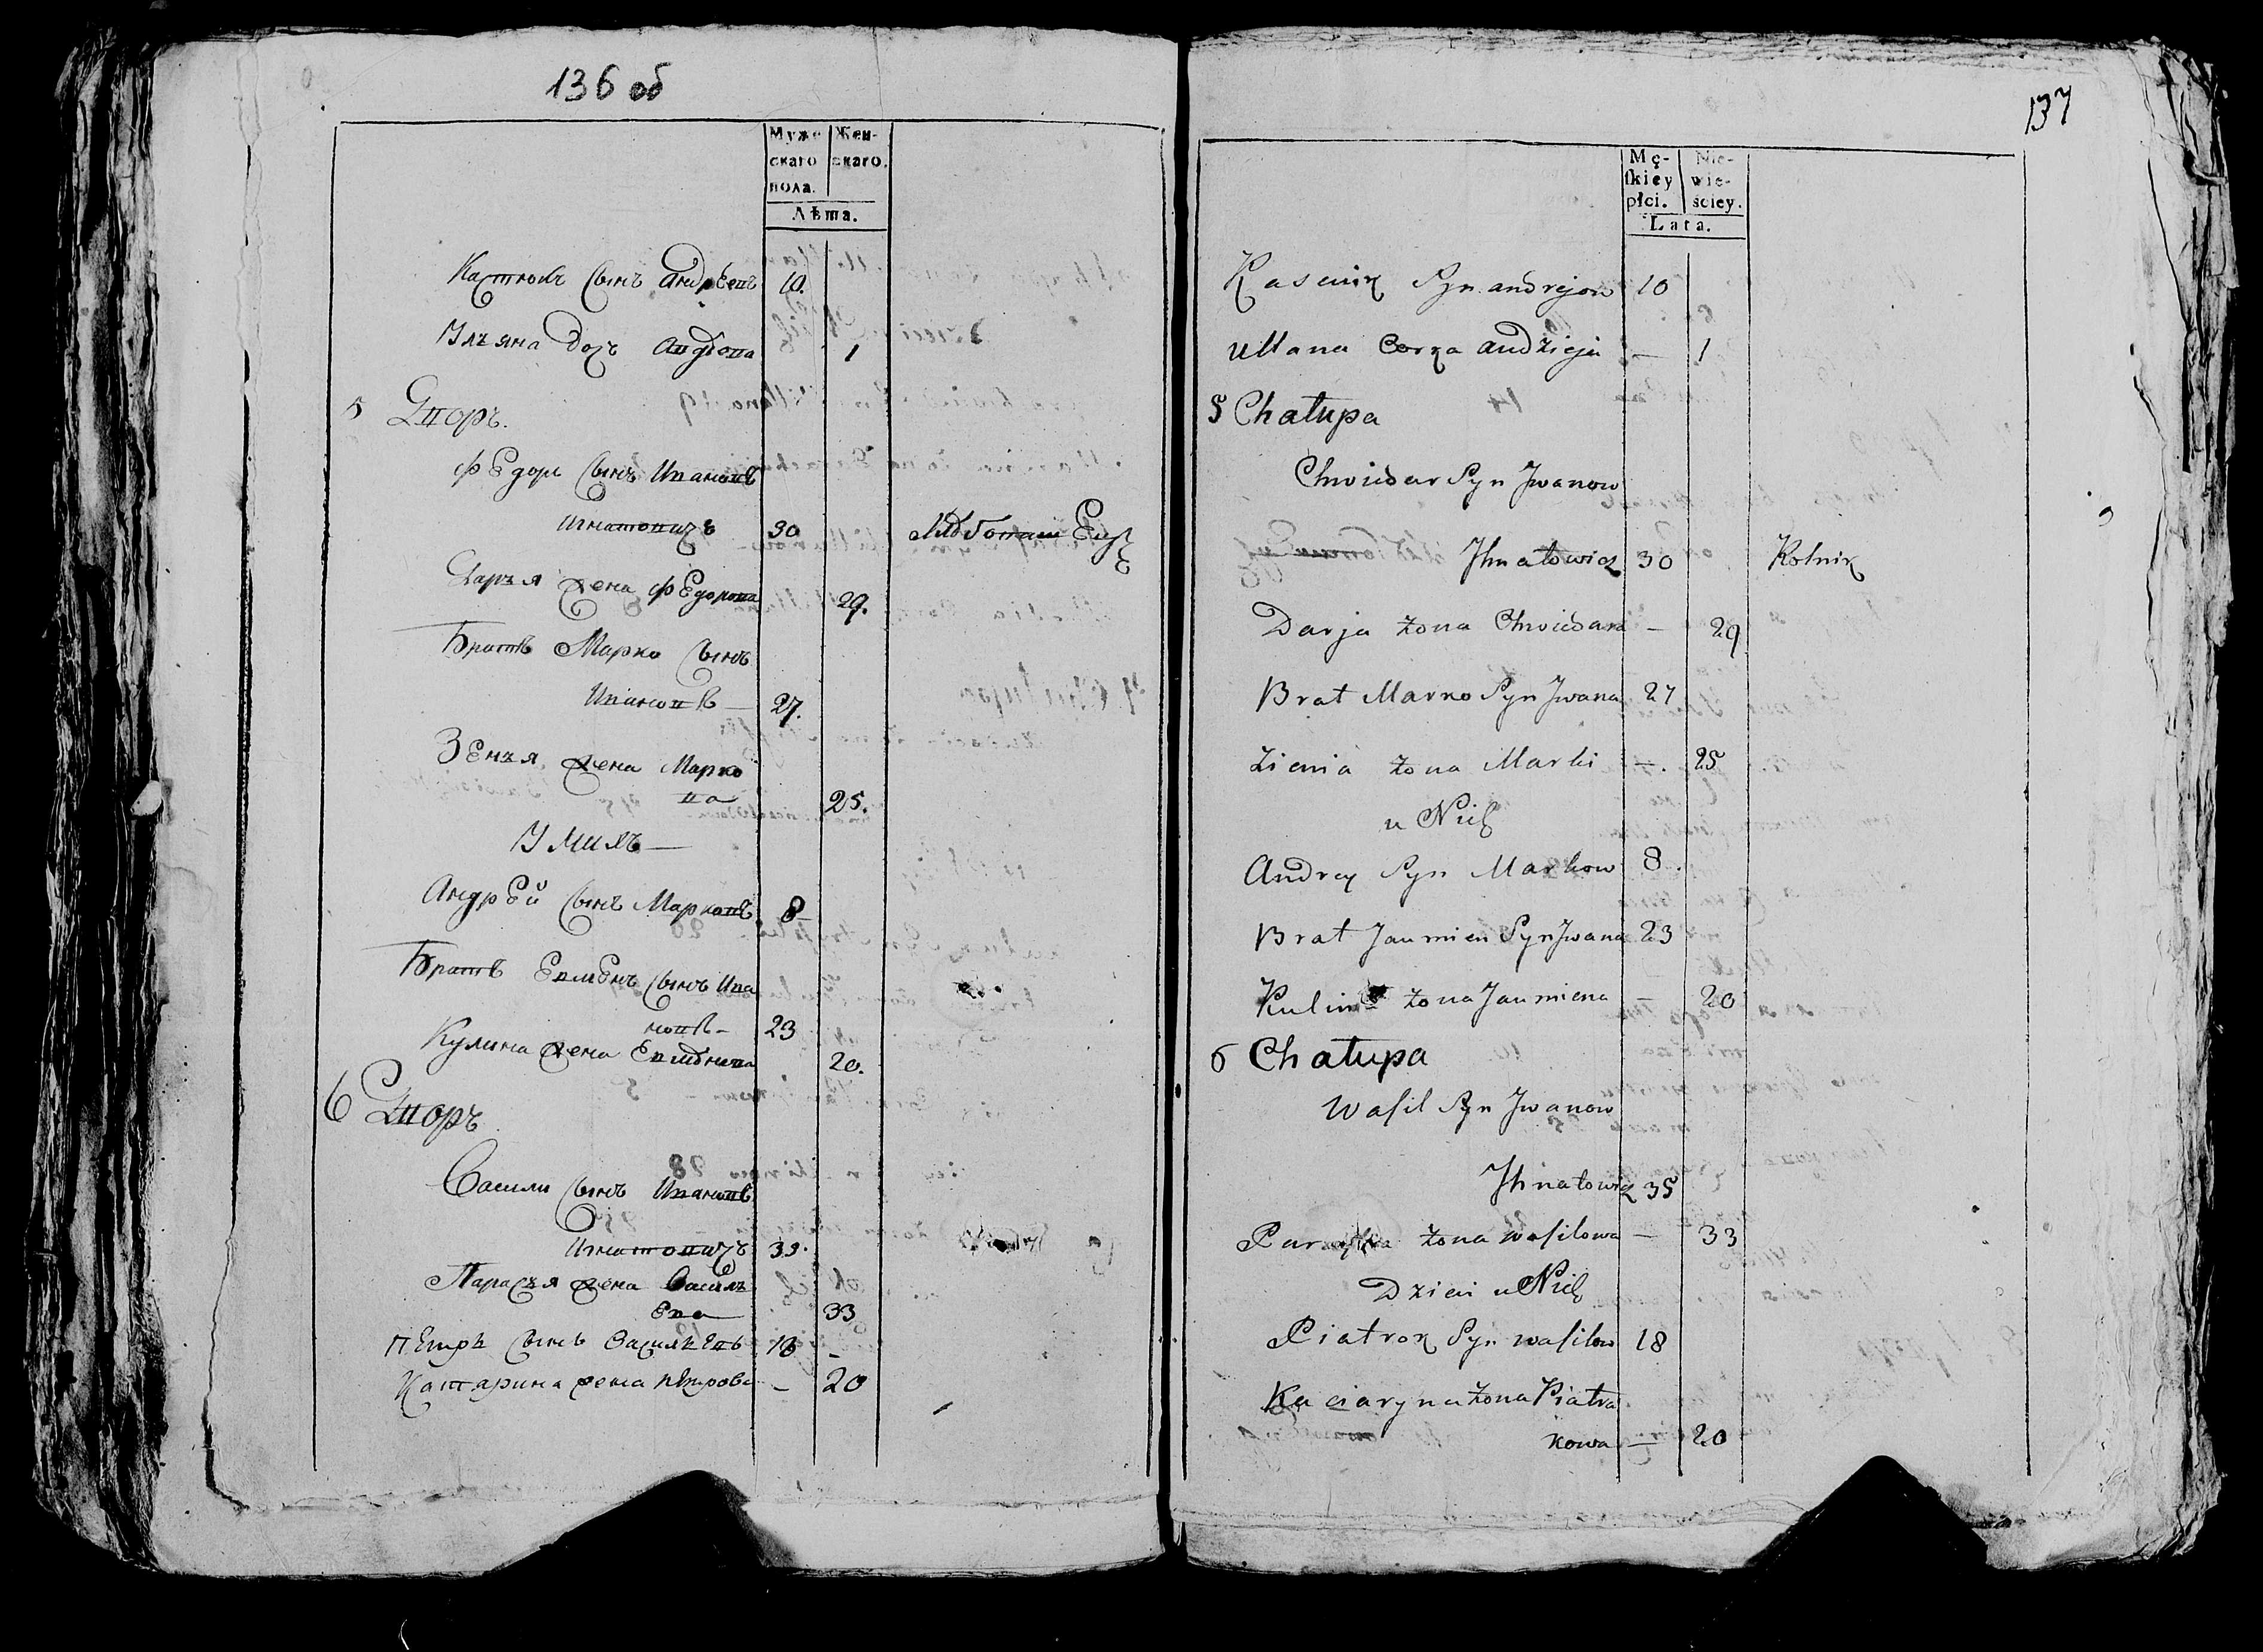 136 об
Муже
скаго
пола.
Жен-
скаго.
Лѣта.
сынъ Андреевъ 10.
Ульяна дочь 1
5 Дворъ.
Федоръ сынъ Ивановъ
Игнатовичъ 30
Дарья жена Федорова 29.
Братъ Марко сынъ
Ивановъ — 27.
Зенья жена Марко
ва 25.
У Михъ —
Андрей сынъ Марковъ 8
Братъ Евменъ сынъ Ива
новъ — 23
Кулина жена Евменова 20.
6 Дворъ
Василий сынъ Ивановъ
Игнатовичъ 35.
Парасья жена Василь
ева 33
Петръ сынъ Васильевъ 18 –
Катарина жена Петрова – 20
137
Mę-
ſkiey
płci.
Nie-
wie-
ściey.
Lata.
Syn andrejow 10
Ullana Corka andzieja — 1
5 Chałupa
Chwiedar Syn Jwanow
Jhnatowicz 30 Rolnik
Darja żona Chwiedara — 29
Brat Marko Syn Jwana 27
Zienia żona Marki —. 25
u Nich
Andrey Syn Markow 8.
Brat Jaumien Syn Jwana 23
Kulina żona Jaumiena — 20
6 Chałupa
Waſil Syn Jwanow
Jhnatowicz 35
żona waſilowa — 33
Dzieci u Nich
Piatrok Syn waſilow 18
Kaciaryna żona Piatra
kowa — 20